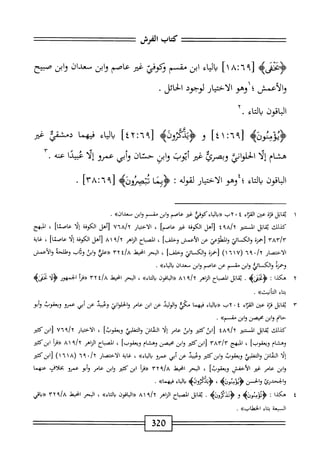 كتاب الفرش
﴿تَخْفَى﴾ [٦٩:١٨] بالياء ابن مقسم وكوفيّ غير عاصم وابن سعدان وابن صبيح
والأعمش ؛ ١وهو الاختيار لوجود الحائل .
الباقون بالتاء . ٢
﴿يُؤْمِنُونَ﴾ [٦٩:٤١] و ﴿يَذَّكَّرُونَ﴾ [٦٩:٤٢] بالياء فيهما دمشقيٌّ غير
هشام إلّا الحلوانيَّ وبصريٌّ غير أيّوبَ وابنِ حسّان وأبي عمرو إلّا عُبيدًا عنه . ٣
الباقون بالتاء ؛ ٤وهو الاختيار لقوله : ﴿بِمَا تُبْصِرُونَ﴾ [٦٩:٣٨] .
١ يُقابل قرّة عين القرّاء ٢٠٤ب «بالياء كوفيّ غير عاصم وابن مقسم وابن سعدان» .
كذلك يُقابل المستنير ٤٩٨/٢ [أهل الكوفة غير عاصم] ، الاختيار ٧٦٨/٢ [أهل الكوفة إلّا عاصمًا] ، المبهج
٣٨٣/٣ [حمزة والكسائيّ والمطّوّعيّ عن الأعمش وخلف] ، المصباح الزاهر ٨١٩/٢ [أهل الكوفة إلّا عاصمًا] ، غاية
الاختصار ٦٩٠/٢ (١٦١٧) [حمزة والكسائيّ وخلف] ، البحر المحيط ٣٢٤/٨ «عليّ وابنُ وثّاب وطلحةُ والأعمش
وحمزةُ والكسائيُّ وابن مقسم عن عاصم وابن سعدان بالياء» .
٢ هكذا : ﴿تَخْفَى﴾ . يُقابل المصباح الزاهر ٨١٩/٢ «الباقون بالتاء» ، البحر المحيط ٣٢٤/٨ «قرأ الجمهور ﴿لَا تَخْفَى﴾
بتاء التأنيث» .
٣ يُقابل قرّة عين القرّاء ٢٠٤ب «بالياء فيهما مكّيٌّ والوليدُ عن ابن عامر والحلوانيُّ وعُبيدٌ عن أبي عمرو ويعقوبُ وأبو
حاتم وابن محيصن وابن مقسم» .
كذلك يُقابل المستنير ٤٨٩/٢ [ابنُ كثير وابنُ عامر إلّا النقّاشَ والتغلبيَّ ويعقوبُ] ، الاختيار ٧٦٩/٢ [ابن كثير
وهشام ويعقوب] ، المبهج ٣٨٣/٣ [ابن كثير وابن محيصن وهشام ويعقوب] ، المصباح الزاهر ٨١٩/٢ «قرأ ابن كثير
إلّا النقّاش والتغلبيّ ويعقوبُ وابن كثير وعُبيدٌ عن أبي عمرو بالياء» ، غاية الاختصار ٦٩٠/٢ (١٦١٨) [ابن كثير
وابن عامر غير الأخفش ويعقوب] ، البحر المحيط ٣٢٩/٨ «قرأ ابن كثير وابن عامر وأبو عمرو بخلافٍ عنهما
والجحدريّ والحسن ﴿يُؤْمِنُونَ﴾ ، ﴿يَذَّكَّرُونَ﴾ بالياء فيهما» .
٤ هكذا : ﴿تُؤْمِنُونَ﴾ و ﴿تَذَكَّرُونَ﴾ . يُقابل المصباح الزاهر ٨١٩/٢ «الباقون بالتاء» ، البحر المحيط ٣٢٩/٨ «باقي
السبعة بتاء الخطاب» .
320